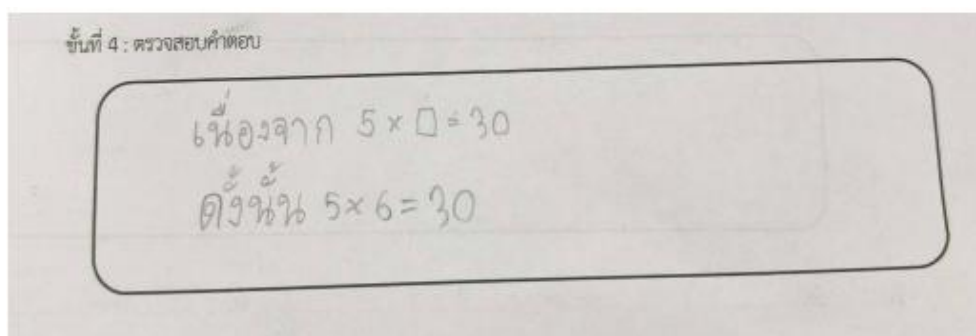 ขั้นที่ 4 : ตรวจสอบคำตอบ
เนื่องจาก 5 × □ = 30
ดั้งนั้น 5 × 6 = 30